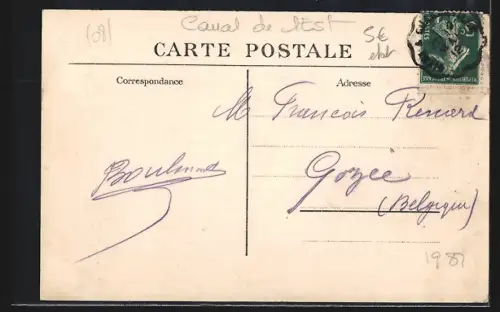 (08)
Canal de l'Est
5€
CARTE POSTALE
Correspondance
Adresse
M François Renard
Gozée
(Belgique)
1987